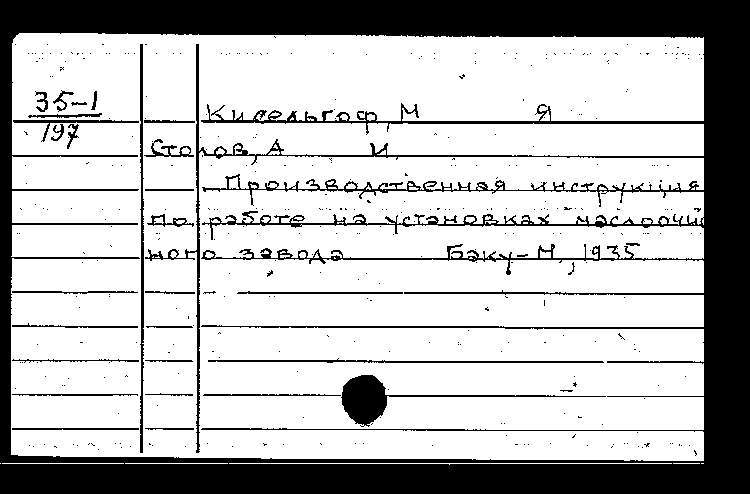 35-1
197
Кисельгоф, М Я
Столов, А И.
Производственная инструкция
по работе на установках маслоочи
ного завода Баку-М., 1935